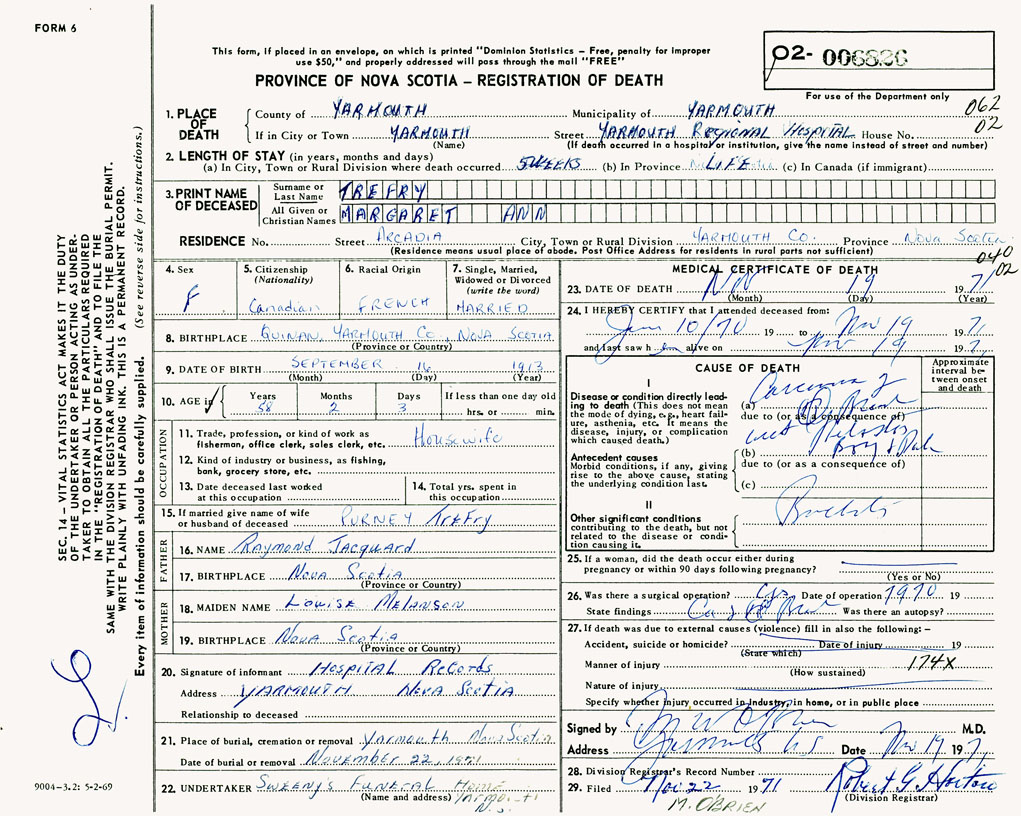 FORM 6
This form, if placed in an envelope, on which is printed "Dominion Statistics – Free, penalty for improper
use $50," and properly addressed will pass through the mail "FREE"
PROVINCE OF NOVA SCOTIA – REGISTRATION OF DEATH
02- 006836
For use of the Department only
062
02
1. PLACE OF DEATH
County of YARMOUTH Municipality of YARMOUTH
If in City or Town YARMOUTH Street YARMOUTH REGIONAL HOSPITAL House No.
(Name) (If death occurred in a hospital or institution, give the name instead of street and number)
2. LENGTH OF STAY (in years, months and days)
(a) In City, Town or Rural Division where death occurred 5 WEEKS (b) In Province LIFE (c) In Canada (if immigrant)
3. PRINT NAME OF DECEASED
Surname or Last Name TREFRY
All Given or Christian Names MARGARET ANN
RESIDENCE No. Street ARCADIA City, Town or Rural Division YARMOUTH CO. Province NOVA SCOTIA
(Residence means usual place of abode. Post Office Address for residents in rural parts not sufficient)
040
02
4. Sex
F
5. Citizenship
(Nationality)
Canadian
6. Racial Origin
FRENCH
7. Single, Married,
Widowed or Divorced
(write the word)
MARRIED
8. BIRTHPLACE QUINAN, YARMOUTH CO, NOVA SCOTIA
(Province or Country)
9. DATE OF BIRTH SEPTEMBER 16 1913
(Month) (Day) (Year)
10. AGE in
Years Months Days If less than one day old
58 2 3 hrs. or min.
OCCUPATION
11. Trade, profession, or kind of work as
fisherman, office clerk, sales clerk, etc. Housewife
12. Kind of industry or business, as fishing,
bank, grocery store, etc.
13. Date deceased last worked
at this occupation
14. Total yrs. spent in
this occupation
15. If married give name of wife
or husband of deceased PURNEY TREFRY
FATHER
16. NAME RAYMOND JACQUARD
17. BIRTHPLACE NOVA SCOTIA
(Province or Country)
MOTHER
18. MAIDEN NAME LOUISE MELANSON
19. BIRTHPLACE NOVA SCOTIA
(Province or Country)
20. Signature of informant HOSPITAL RECORDS
Address YARMOUTH NOVA SCOTIA
Relationship to deceased
21. Place of burial, cremation or removal Yarmouth Nova Scotia
Date of burial or removal NOVEMBER 22, 1971
22. UNDERTAKER SWEENY'S FUNERAL HOME
(Name and address) YARMOUTH
N.S.
MEDICAL CERTIFICATE OF DEATH
23. DATE OF DEATH Nov 19 1971
(Month) (Day) (Year)
24. I HEREBY CERTIFY that I attended deceased from:
10/70 19 to Nov 19 1971
and last saw h alive on Nov 19 1971
CAUSE OF DEATH
Approximate interval between onset and death
I
Disease or condition directly leading to death (This does not mean
the mode of dying, e.g., heart failure, asthenia, etc. It means the
disease, injury, or complication
which caused death.)
(a) Carcinoma of
due to (or as a consequence of)
Breast
Antecedent causes
Morbid conditions, if any, giving
rise to the above cause, stating
the underlying condition last.
(b) with
due to (or as a consequence of)
(c)
II
Other significant conditions
contributing to the death, but not
related to the disease or condition causing it.
25. If a woman, did the death occur either during
pregnancy or within 90 days following pregnancy?
(Yes or No)
26. Was there a surgical operation? yes Date of operation 1970 19
State findings Ca of Breast Was there an autopsy?
27. If death was due to external causes (violence) fill in also the following: –
Accident, suicide or homicide? Date of injury 19
(State which)
Manner of injury 174X
(How sustained)
Nature of injury
Specify whether injury occurred in industry, in home, or in public place
Signed by M.D.
Address Yarmouth NS Date Nov 19 1971
28. Division Registrar's Record Number
29. Filed Nov 22 1971 Robert G. Horton
(Division Registrar)
M. O'BRIEN
SEC. 14 – VITAL STATISTICS ACT MAKES IT THE DUTY
OF THE UNDERTAKER OR PERSON ACTING AS UNDERTAKER TO OBTAIN ALL THE PARTICULARS REQUIRED
IN THE "REGISTRATION OF DEATH" AND TO FILE THE
SAME WITH THE DIVISION REGISTRAR WHO SHALL ISSUE THE BURIAL PERMIT.
WRITE PLAINLY WITH UNFADING INK. THIS IS A PERMANENT RECORD.
Every item of information should be carefully supplied. (See reverse side for instructions.)
9004–3.2: 5-2-69